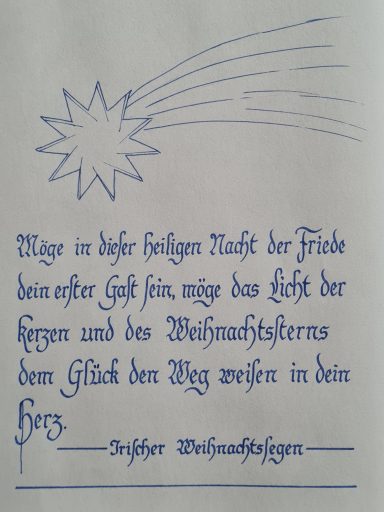 Möge in dieſer heiligen Nacht der Friede
dein erſter Gaſt ſein, möge das Licht der
Kerzen und des Weihnachtsſterns
dem Glück den Weg weiſen in dein
Herz.
Iriſcher Weihnachtsſegen